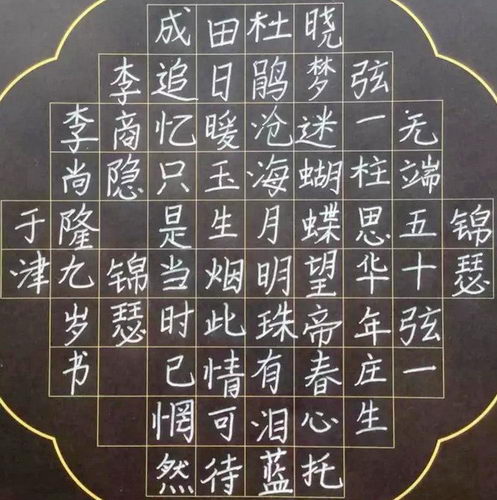 锦瑟
无端五十弦一
弦一柱思华年庄生
晓梦迷蝴蝶望帝春心托
杜鹃沧海月明珠有泪蓝
田日暖玉生烟此情可待
成追忆只是当时已惘然
李商隐 锦瑟
李尚隆九岁书
于津